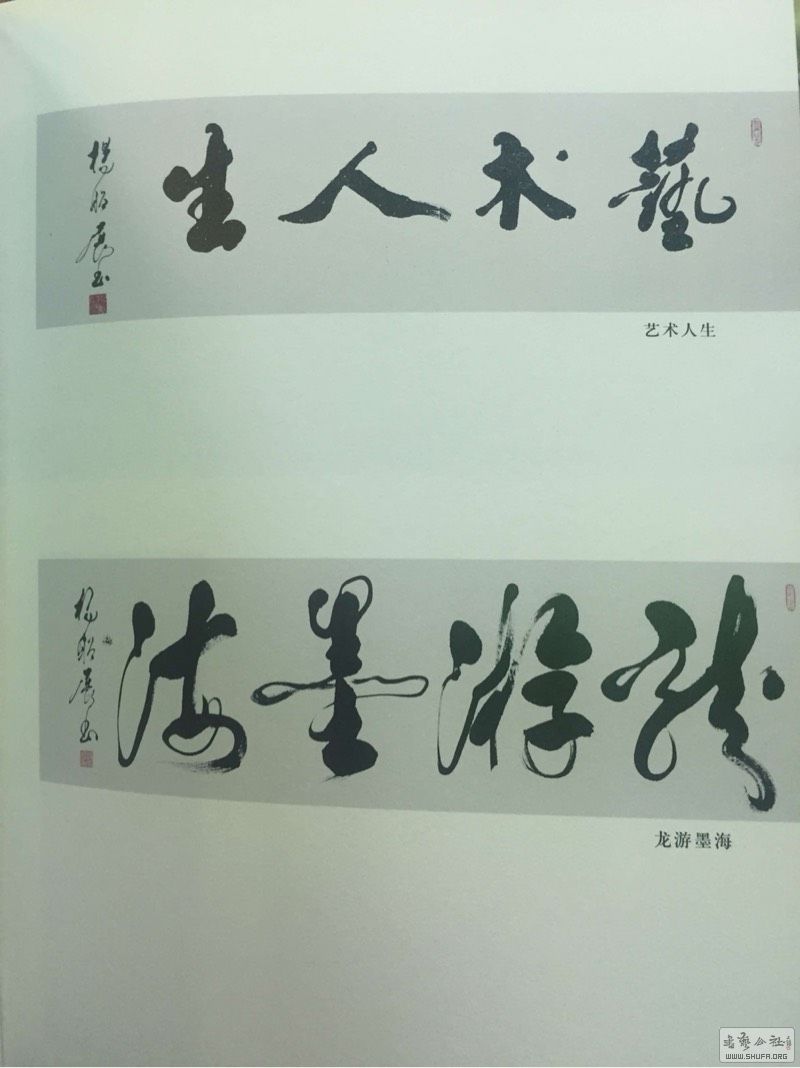 藝术人生
楊昭展书
艺术人生
龙游墨海
杨昭展书
龙游墨海
書藝公社
WWW.SHUFA.ORG